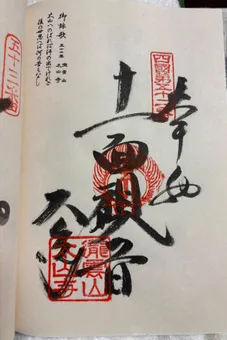 御詠歌
五十二番 瀧雲山
太山寺
太山へのぼれば汗の出でけれど
後の世思へば何の苦もなし
四國第五十二番
奉納
十一面観音
太山寺
瀧雲山
太山寺
五十三